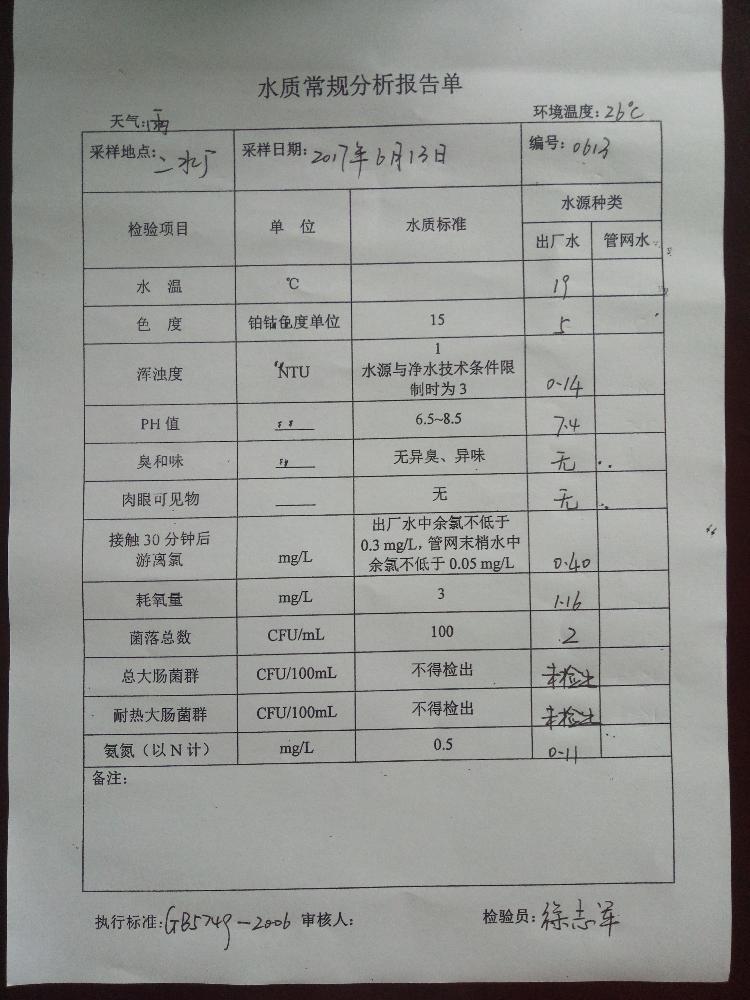 水质常规分析报告单
天气:雨 环境温度:26℃
采样地点:二水厂 采样日期:2017年6月13日 编号:0613
检验项目 单 位 水质标准 水源种类
出厂水 管网水
水 温 ℃ 19
色 度 铂钴色度单位 15 5
浑浊度 NTU 1
水源与净水技术条件限
制时为 3 0.14
PH 值 6.5~8.5 7.4
臭和味 无异臭、异味 无
肉眼可见物 无 无
接触 30 分钟后
游离氯 mg/L 出厂水中余氯不低于
0.3 mg/L, 管网末梢水中
余氯不低于 0.05 mg/L 0.40
耗氧量 mg/L 3 1.16
菌落总数 CFU/mL 100 2
总大肠菌群 CFU/100mL 不得检出 未检出
耐热大肠菌群 CFU/100mL 不得检出 未检出
氨氮（以 N 计） mg/L 0.5 0.11
备注:
执行标准:GB5749-2006 审核人: 检验员:徐志军